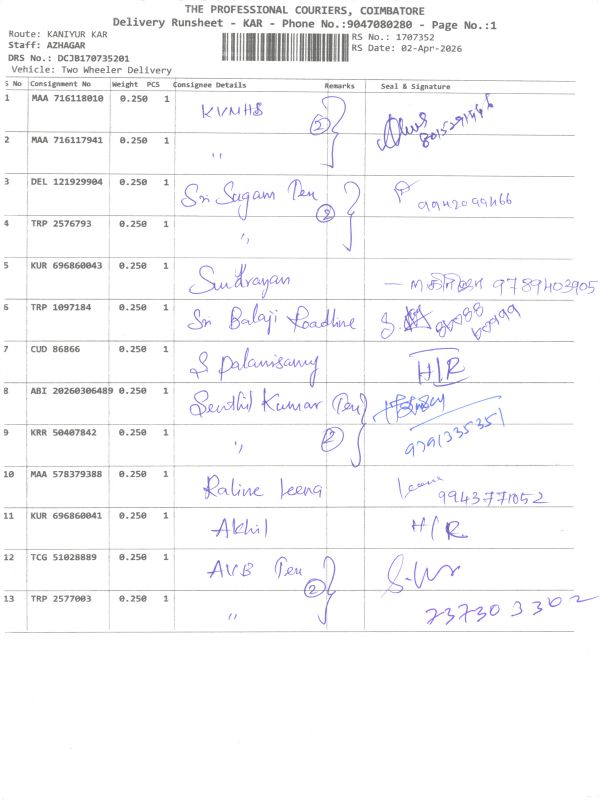 THE PROFESSIONAL COURIERS, COIMBATORE
Delivery Runsheet - KAR - Phone No.:9047080280 - Page No.:1
Route: KANIYUR KAR
Staff: AZHAGAR
DRS No.: DCJB170735201
Vehicle: Two Wheeler Delivery
RS No.: 1707352
RS Date: 02-Apr-2026
S No Consignment No Weight PCS Consignee Details Remarks Seal & Signature
1 MAA 716118010 0.250 1 KVMHS 2
2 MAA 716117941 0.250 1 "
3 DEL 121929904 0.250 1 Sri Sugam Tex 2 9942099466
4 TRP 2576793 0.250 1 "
5 KUR 696860043 0.250 1 9789403905
6 TRP 1097184 0.250 1 Sri Balaji Roadline
7 CUD 86866 0.250 1 S Palanisamy H/R
8 ABI 20260306489 0.250 1 Senthil Kumar Tex
9 KRR 50407842 0.250 1 " 2 9791335351
10 MAA 578379388 0.250 1 Raline Leena Leena 9943771052
11 KUR 696860041 0.250 1 Akhil H/R
12 TCG 51028889 0.250 1 AVB Tex 2
13 TRP 2577003 0.250 1 "